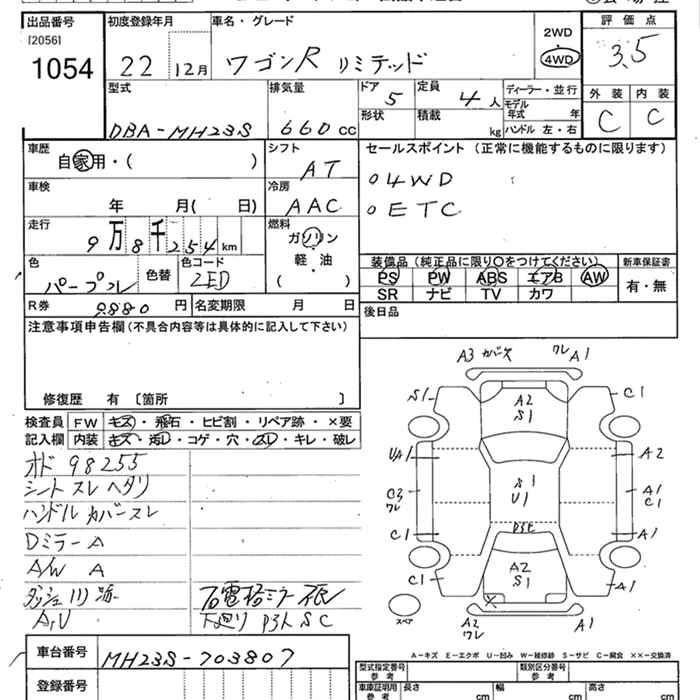 出品番号 初度登録年月 車名・グレード 評価点
[2056]
1054 22 12月 ワゴンR リミテッド 2WD 4WD 3.5
型式 排気量 ドア 5 定員 4人 ディーラー・並行 外装 内装
DBA-MH23S 660cc 形状 積載 kg モデル年式 年 C C
ハンドル 左・右
車歴 シフト セールスポイント (正常に機能するものに限ります)
自家用・( ) AT ○4WD
車検 冷房 ○ETC
年 月( 日) AAC
走行 燃料
9万8千254km ガソリン
色 色替 色コード 軽・油 装備品(純正品に限り○をつけてください) 新車保証書
パープル ZED ( ) PS PW ABS エアB AW 有・無
SR ナビ TV カワ
R券 9880円 名変期限 月 日
注意事項申告欄(不具合内容等は具体的に記入して下さい) 後日品
修復歴 有 [箇所 ]
検査員 FW キズ・飛石・ヒビ割・リペア跡・×要
記入欄 内装 キズ・汚レ・コゲ・穴・スレ・キレ・破レ
オド 98255
シート スレ ヘタリ
ハンドル カバースレ
Dミラー A
A/W A
A3 カバー欠 ワレ A1
S1 A2 S1 C1
UA1 A2
C3 ワレ S1 U1 A1 C1
C1 A1
C1 A2 S1 A1
スペア A2 ワレ A1
A－キズ E－エクボ U－凹み W－補修跡 S－サビ C－腐食 ××－交換済
車台番号 MH23S-703807
登録番号
型式指定番号 参考 類別区分番号 参考
車庫証明用 参考 長さ cm 幅 cm 高さ cm